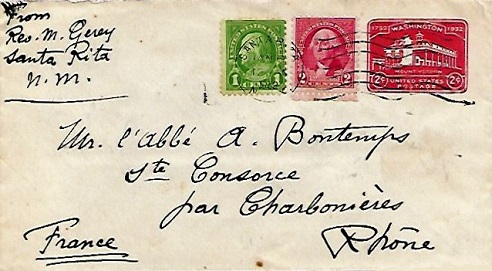 From
Rev. M. Gerey
Santa Rita
N. M.
1
2
1732 WASHINGTON 1932
2¢ 2¢
MOUNT VERNON
UNITED STATES
POSTAGE
Mr. l'abbé A. Bontemps
Ste Consorce
par Charbonières
Rhône
France